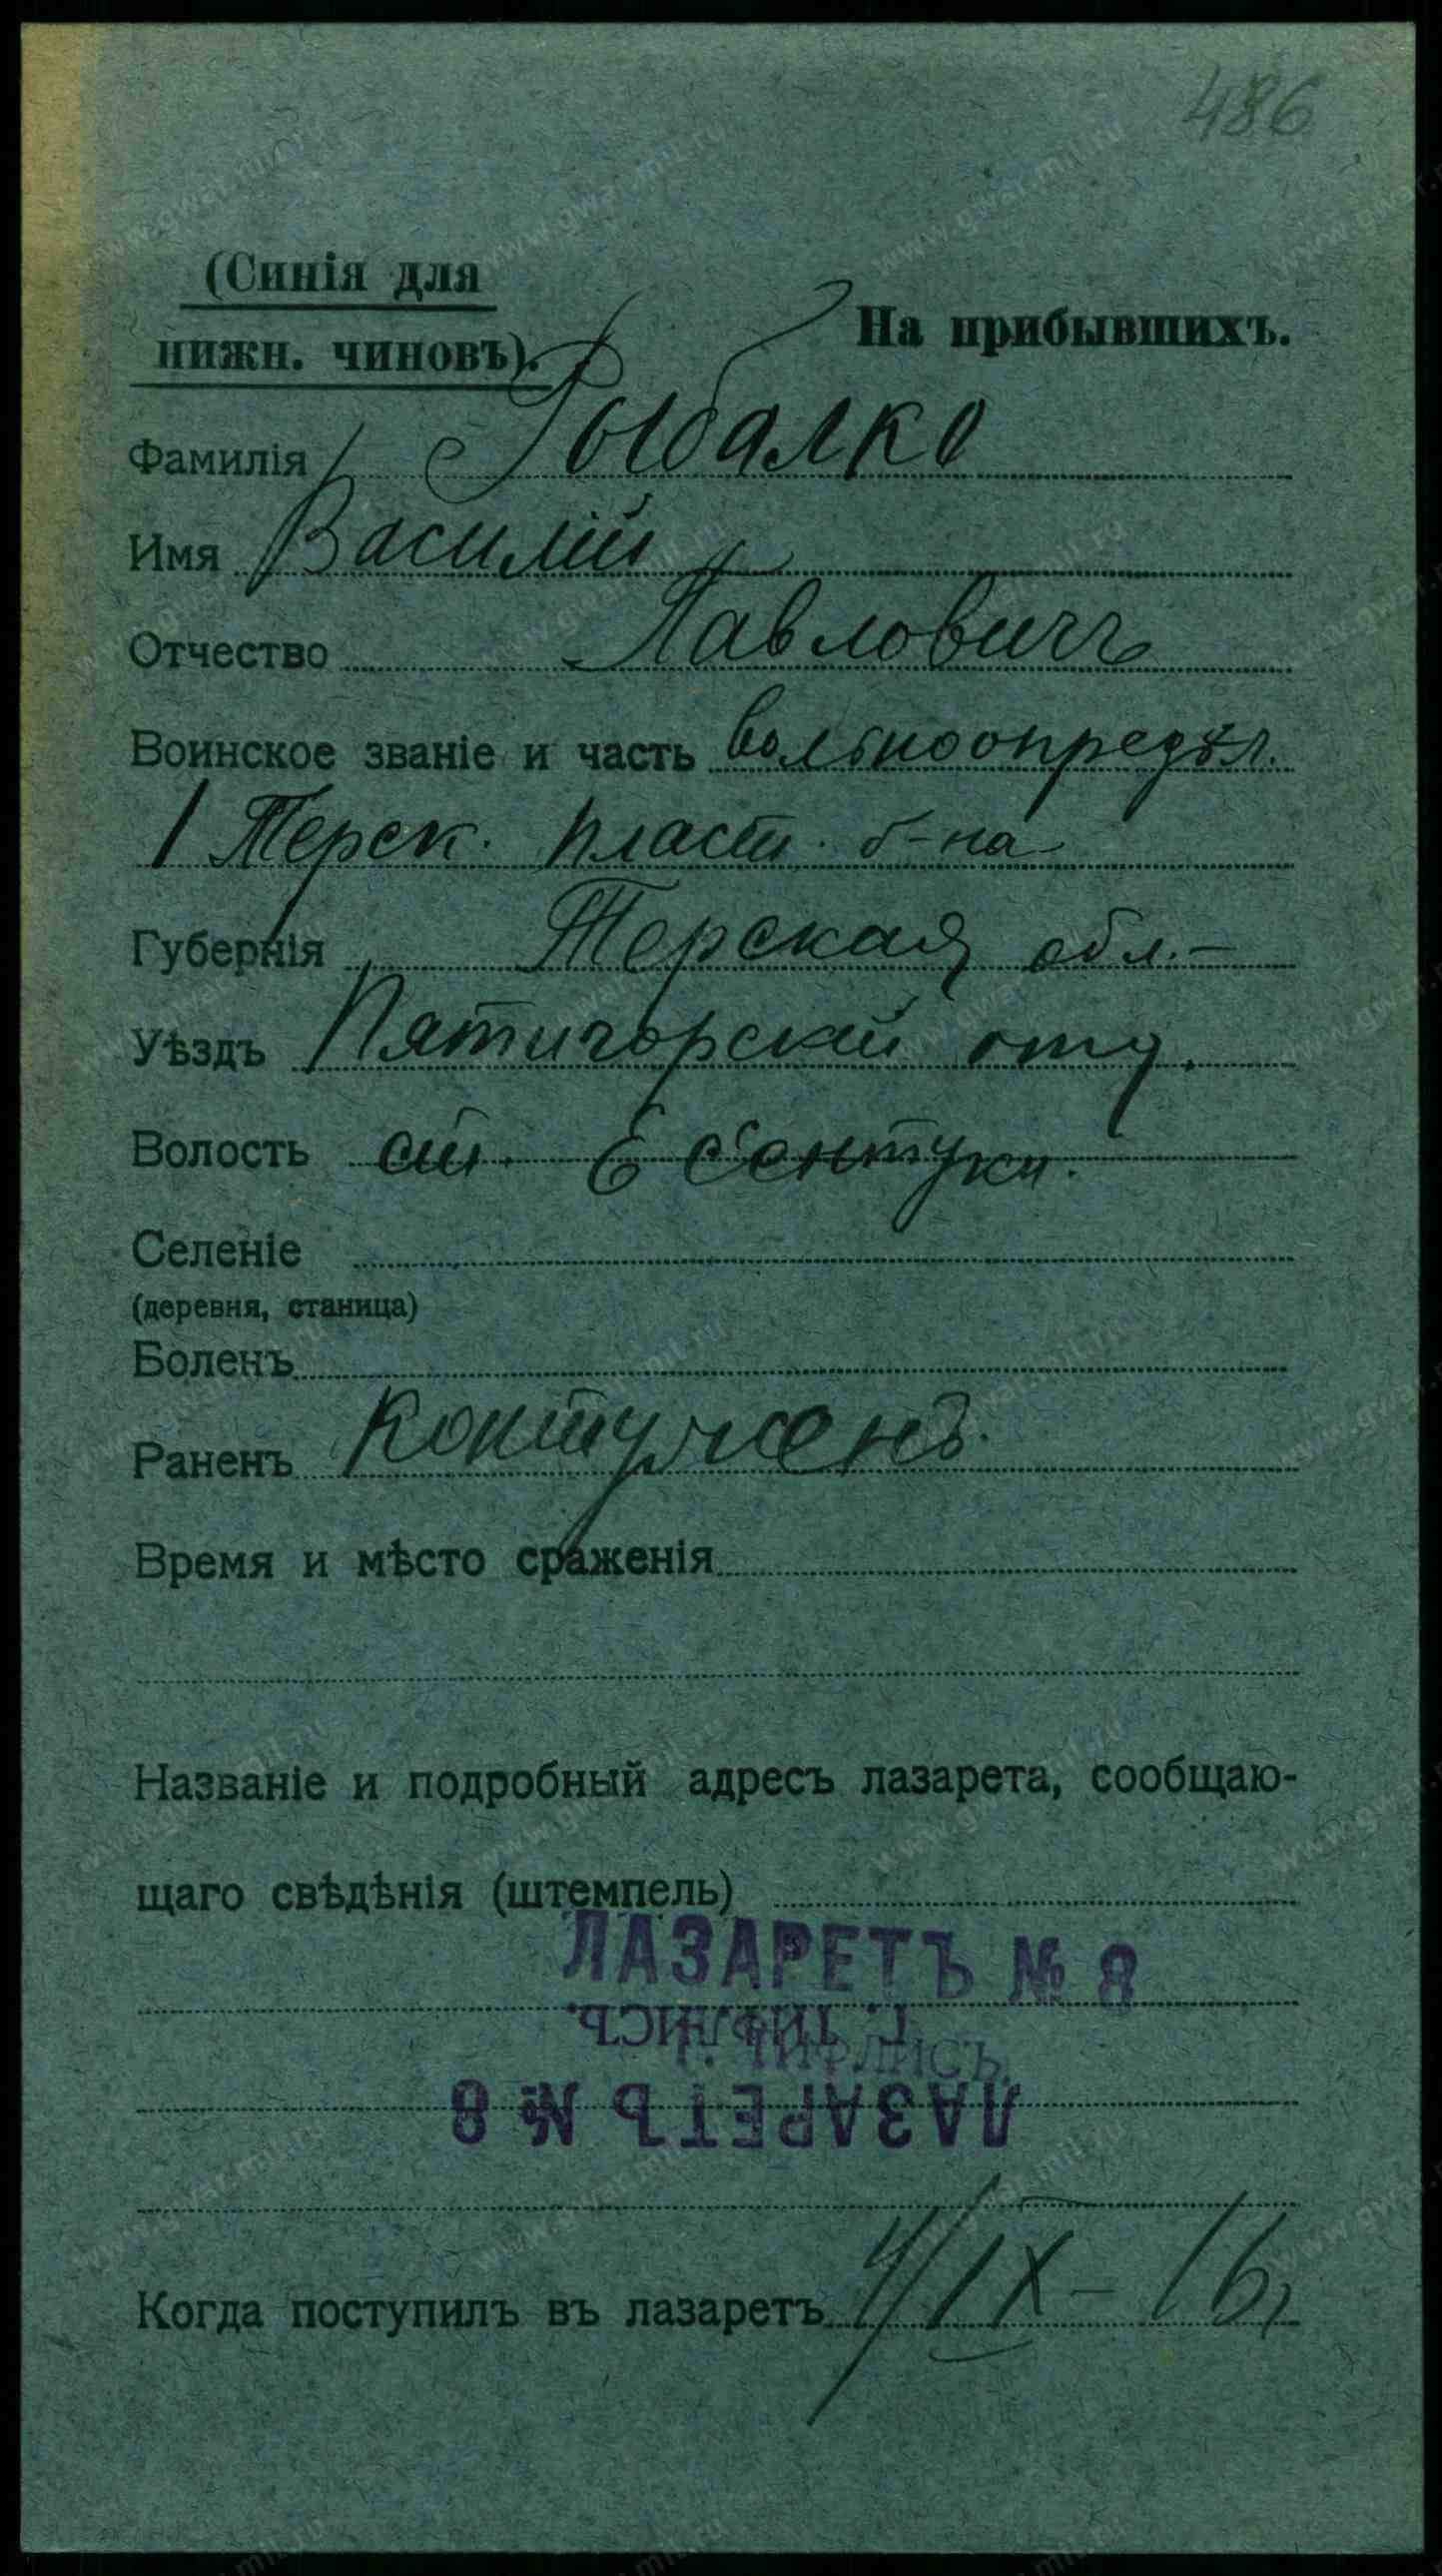 486
(Синія для
нижн. чиновъ).
На прибывшихъ.
Фамилія Рыбалко
Имя Василій
Отчество Павловичъ
Воинское званіе и часть вольноопредѣл.
1 Терск. пласт. б-на
Губернія Терская обл.-
Уѣздъ Пятигорскій отд.
Волость ст. Ессентуки.
Селеніе
(деревня, станица)
Боленъ
Раненъ Контуженъ.
Время и мѣсто сраженія
Названіе и подробный адресъ лазарета, сообщаю-
щаго свѣдѣнія (штемпель)
ЛАЗАРЕТЪ № 8
Г. ТИФЛИСЪ.
Г. ТИФЛИСЪ.
ЛАЗАРЕТЪ № 8
Когда поступилъ въ лазаретъ 4/IX-16
www.gwar.mil.ru